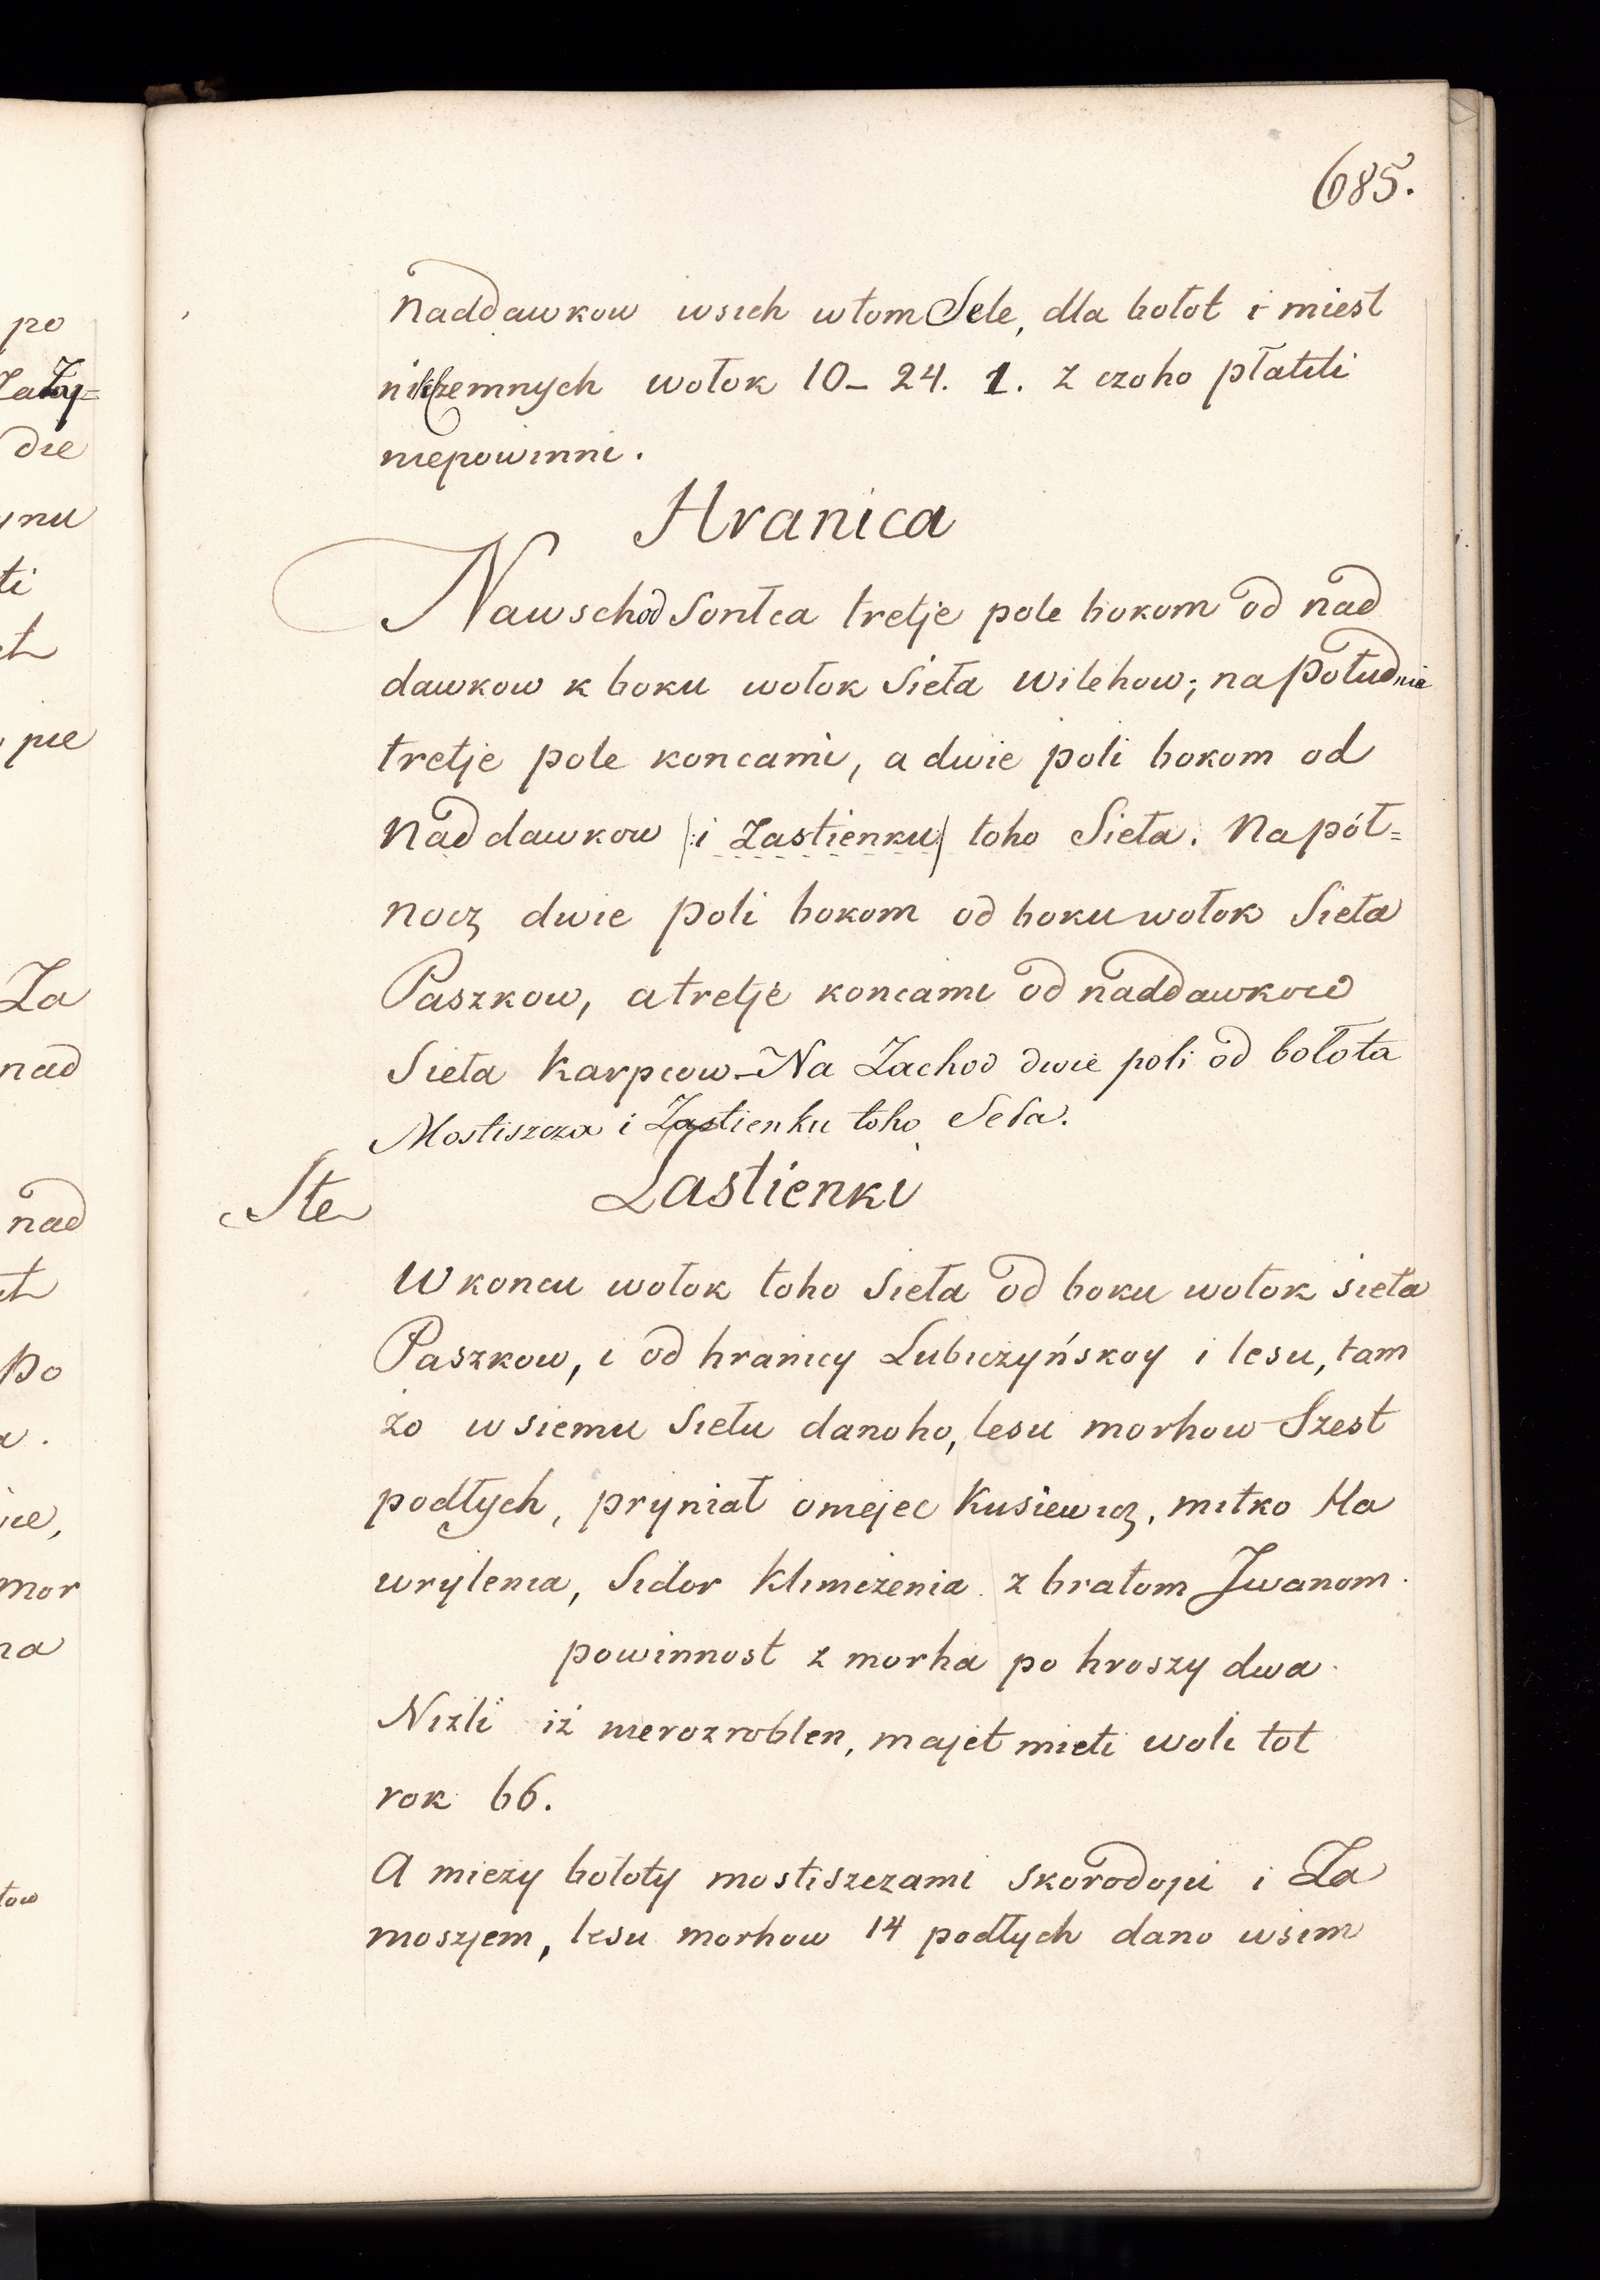 685.
naddawkow wsich wtom Sele, dla bołot i miest
nikczemnych wołok 10– 24. 1. z czoho płatiti
niepowinni.
Hranica
Nawschod Sontca tretje pole bokom od nad
dawkow k boku wołok Sieła Wilehow; na Południe
tretje pole koncami, a dwie poli bokom od
naddawkow (:i Zastienku) toho Sieła. Na pół=
nocz dwie poli bokom od boku wołok Sieła
Paszkow, a tretje koncami od naddawkow
Sieła Karpcow – Na Zachod dwie poli od bołota
Mostiszcza i Zastienku toho Seła.
Ste
Zastienki
W koncu wołok toho Sieła od boku wołok sieła
Paszkow, i od hranicy Lubiczyńskoy i lesu, tam
żo wsiemu Siełu danoho, lesu morhow Szest
podłych, pryniał omejec Kusiewicz, mitko Ha
wrylenia, Sidor Klimczenia z bratom Jwanom.
powinnost z morha po hroszy dwa.
Niżli iż nierozroblen, majet mieti woli tot
rok 66.
A mieży bołoty mostiszczami skorodoju i Za
moszjem, lesu morhow 14 podłych dano wsim
po
die
ynu
ti
pie
Za
nad
nad
po
mor
na